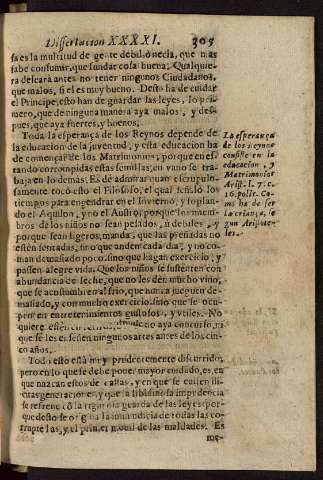 Dissertacion XXXXI. 305
sa es la multitud de gente debil, ò necia, que mas
sabe consumir, que fundar cosa buena; Qualquie-
ra deseará antes no tener ningunos Ciudadanos,
que malos, si el es muy bueno. Desto ha de cuidar
el Principe, esto han de guardar las leyes, lo pri-
mero, que de ninguna manera aya malos, y des-
pues, que aya fuertes, y buenos.
Toda la esperança de los Reynos depende de
la educacion de la juventud, y esta educacion ha
de començar de los Matrimonios, porque en es-
tando corrompidas estas semillas, en vano se tra-
baja en lo demas. Es de admirar quan escrupulo-
samente tocò esto el Filosofo, el qual señalò los
tiempos para engendrar en el Invierno, y soplan-
do el Aquilon, y no el Austro, porque los miem-
bros de los niños no sean pesados, ù debiles, y
porque sean ligeros, manda, que las madres no
estèn sentadas, sino que anden cada dia, y no co-
man demasiado poco, sino que hagan exercicio, y
passen alegre vida. Que los niños se sustenten con
abundancia de leche, que no les dèn mucho vino,
que se acostumbren al frio, que nunca jueguen de-
masiado, y con mucho exercicio, sino que se ocu-
pen en entretenimientos gustosos, y vtiles. No
quiere, estèn no aya concurso, ni
que se les enseñen ningunos artes antes de los cin-
co años.
Todo esto està muy prudentemente discurrido,
pero en lo que se debe poner mayor cuidado, es, en
que nazcan estos de castas, y en que se eviten ili-
citas generaciones, y que la libidinosa imprudencia
se refrene cõ la rigurosa guarda de las leyes; por-
que desto se origina la inmundicia de todas las co-
rruptelas, y el primer movil de las maldades. Es
me-
La esperança
de los Reynos
consiste en la
educacion, y
Matrimonios
Arist. l. 7. c.
16. polit. Co-
mo ha de ser
la criança, se-
gun Aristote-
les.